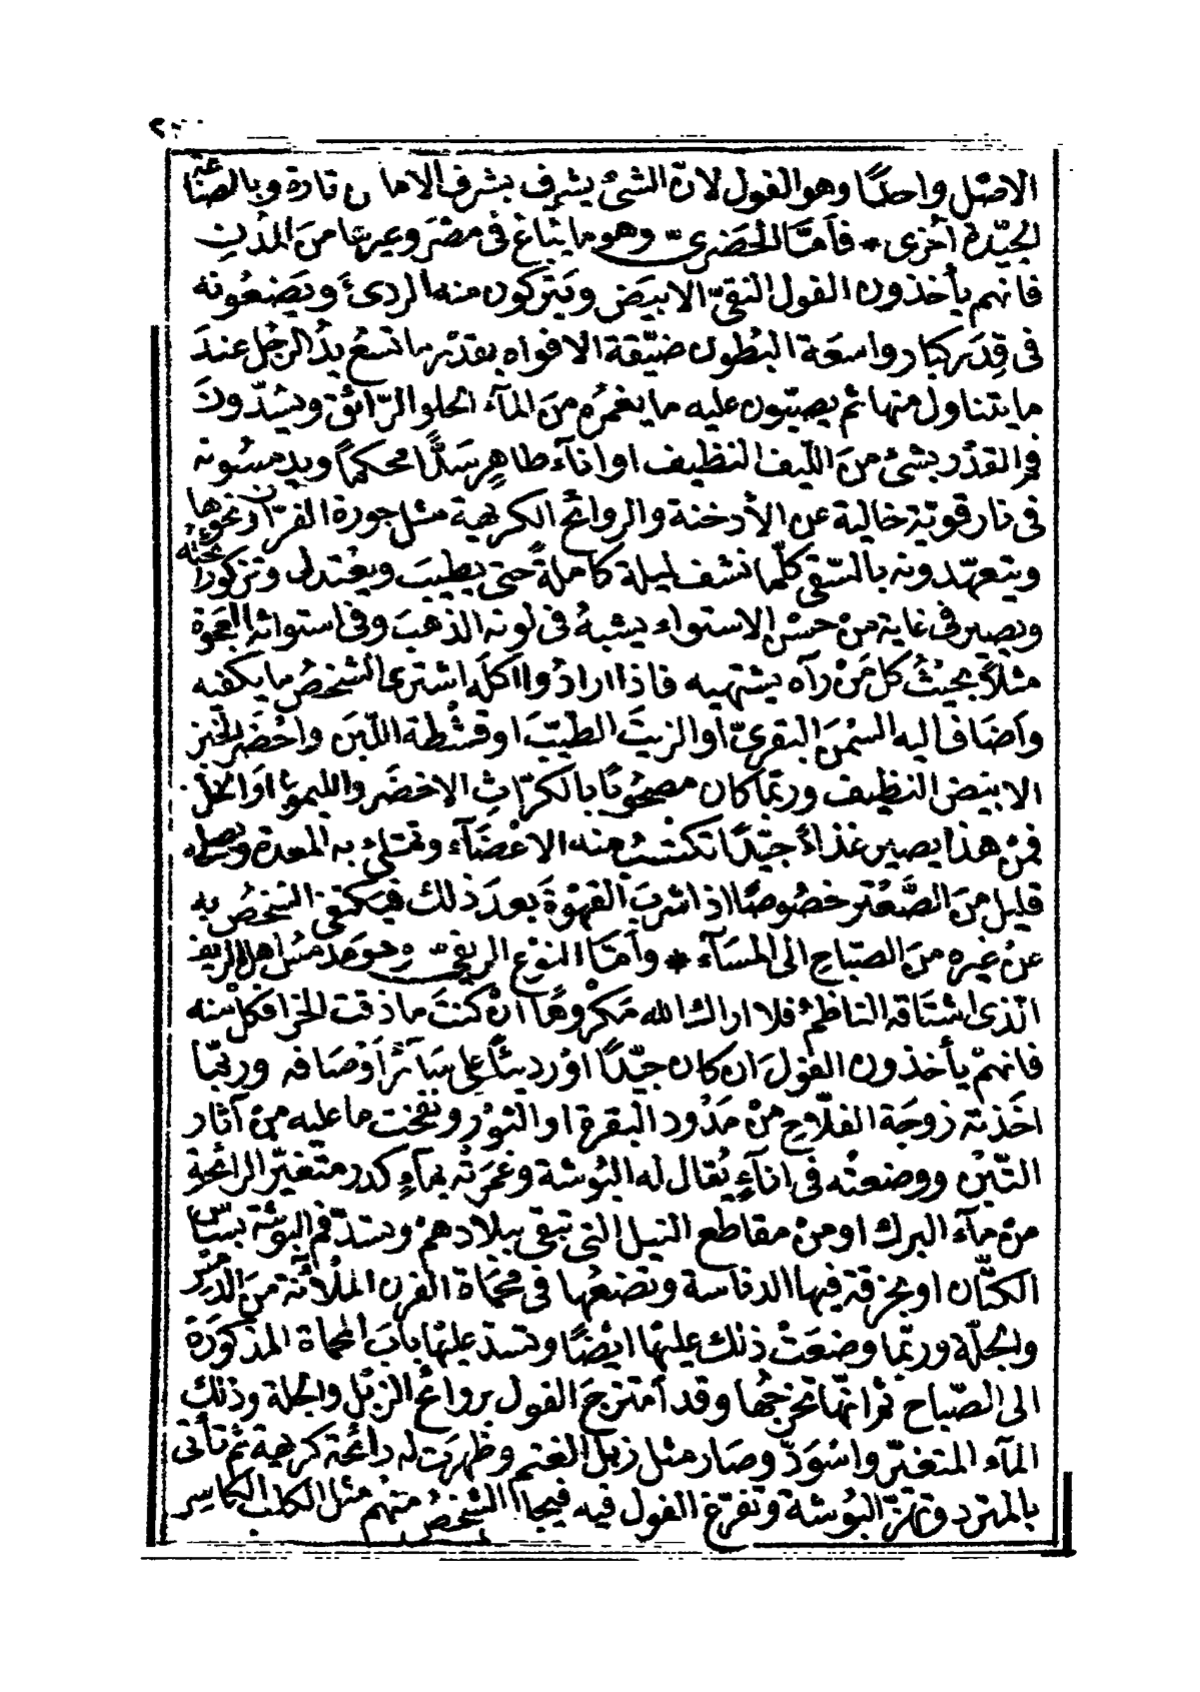 ٢٠٠
الاصل واحدًا وهو الفول لانّ الشئ يشرف بشرف الاماكن تارة وبالصناعة
الجيّدة أخرى * فأمّا الحَضَريّ وهو ما يُباع في مصْرَ وغيرها منَ المُدُنِ
فانهم يأخذون الفول النقيّ الابيَض ويَتركون منه الردئ ويَضعُونه
فى قِدَر كبار واسعَة البُطون ضيّقة الافواه بقدْر ما تسَع يدُ الرجُل عندَ
ما يتناول منها ثم يصبّون عليه ما يغمُره منَ المآء الحلو الرّائق ويسُدّونَ
فم القدْر بشئ منَ اللّيف النظيف او انآء طاهِر سَدًّا محكماً ويدمسُونه
فى نار قويّة خالية عن الأدخنة والروائح الكريهة مثل جورة الفرّان ونحوها
ويتعهّدونه بالسّقى كلّما نشف ليلة كاملةً حتى يطيبَ ويعْتدل وتزكو رائحته
ويصير فى غاية منْ حسْن الاستواء يشبهُ فى لونه الذهبَ وفى استوائه العجوة
مثلاً بحيْثُ كل مَنْ رآه يشتهيه فاذا ارادُوا اكلَه اشترى الشخصُ ما يكفيه
وأضاف اليه السمْنَ البقريّ او الزيتَ الطيّبَ او قشْطة اللّبَن واحْضَر الخبز
الابيَض النظيف وربّما كان مصحُوبًا بالكرّاثِ الاخضَر والليمون او الخلّ
فمنْ هذا يصير غذاءً جيّدًا تكتسبُ منه الاعْضآء وتمتلئ به المعدة
قليل منَ الصَّعْتر خصُوصًا اذا شربَ القهْوةَ بعدَ ذلك فيكتفى الشخصُ به
عنْ غيره منَ الصبَاحِ الى المسَآء * وأمّا النوْع الريفيّ وهو مدمّس اهل الريف
الّذى اشتَاقه الناظمُ فلا اراك الله مكْروهًا انْ كنتَ ما ذقت الخرا فكلْ منه
فانهمْ يأخذون الفول انْ كان جيّدًا اوْ رديئًا على سَآئر أوْصَافه وربّما
اخَذتْه زوجَة الفلّاحِ منْ مَدْود البقرة او الثوْر ونفخت ما عليه منْ آثار
التّبْن ووضعتْه فى انآءٍ يُقال له البُوشة وغمَرتْه بمآءٍ كدر متغيّر الرائحة
منْ مآء البرك او منْ مقاطع النيل التى تبقى ببلادهمْ وتسدّ فم البُوشة بسَاس
الكتّان او بخرْقة فيها الدناسة وتضعُها فى محْماة الفرن الملْآنة منَ الدمْس
والجلّة وربّما وضعَتْ ذلك عليْها ايْضًا وتسدّ عليْها بابَ المحْماة المذكورَة
الى الصّباح ثمّ انّها تخرجُها وقد أمتزجَ الفول بروائح الزبْل والجلة وذلك
المآء المتغيّر واسْوَدّ وصَار مثل زبل الغنم وظهرَت له رائحة كريهة ثم تأتى
بالمترد وتهزّ البُوشة وتفرّغ الفول فيه فيجئ الشخصُ منْهم مثل الكلب الكاسِر